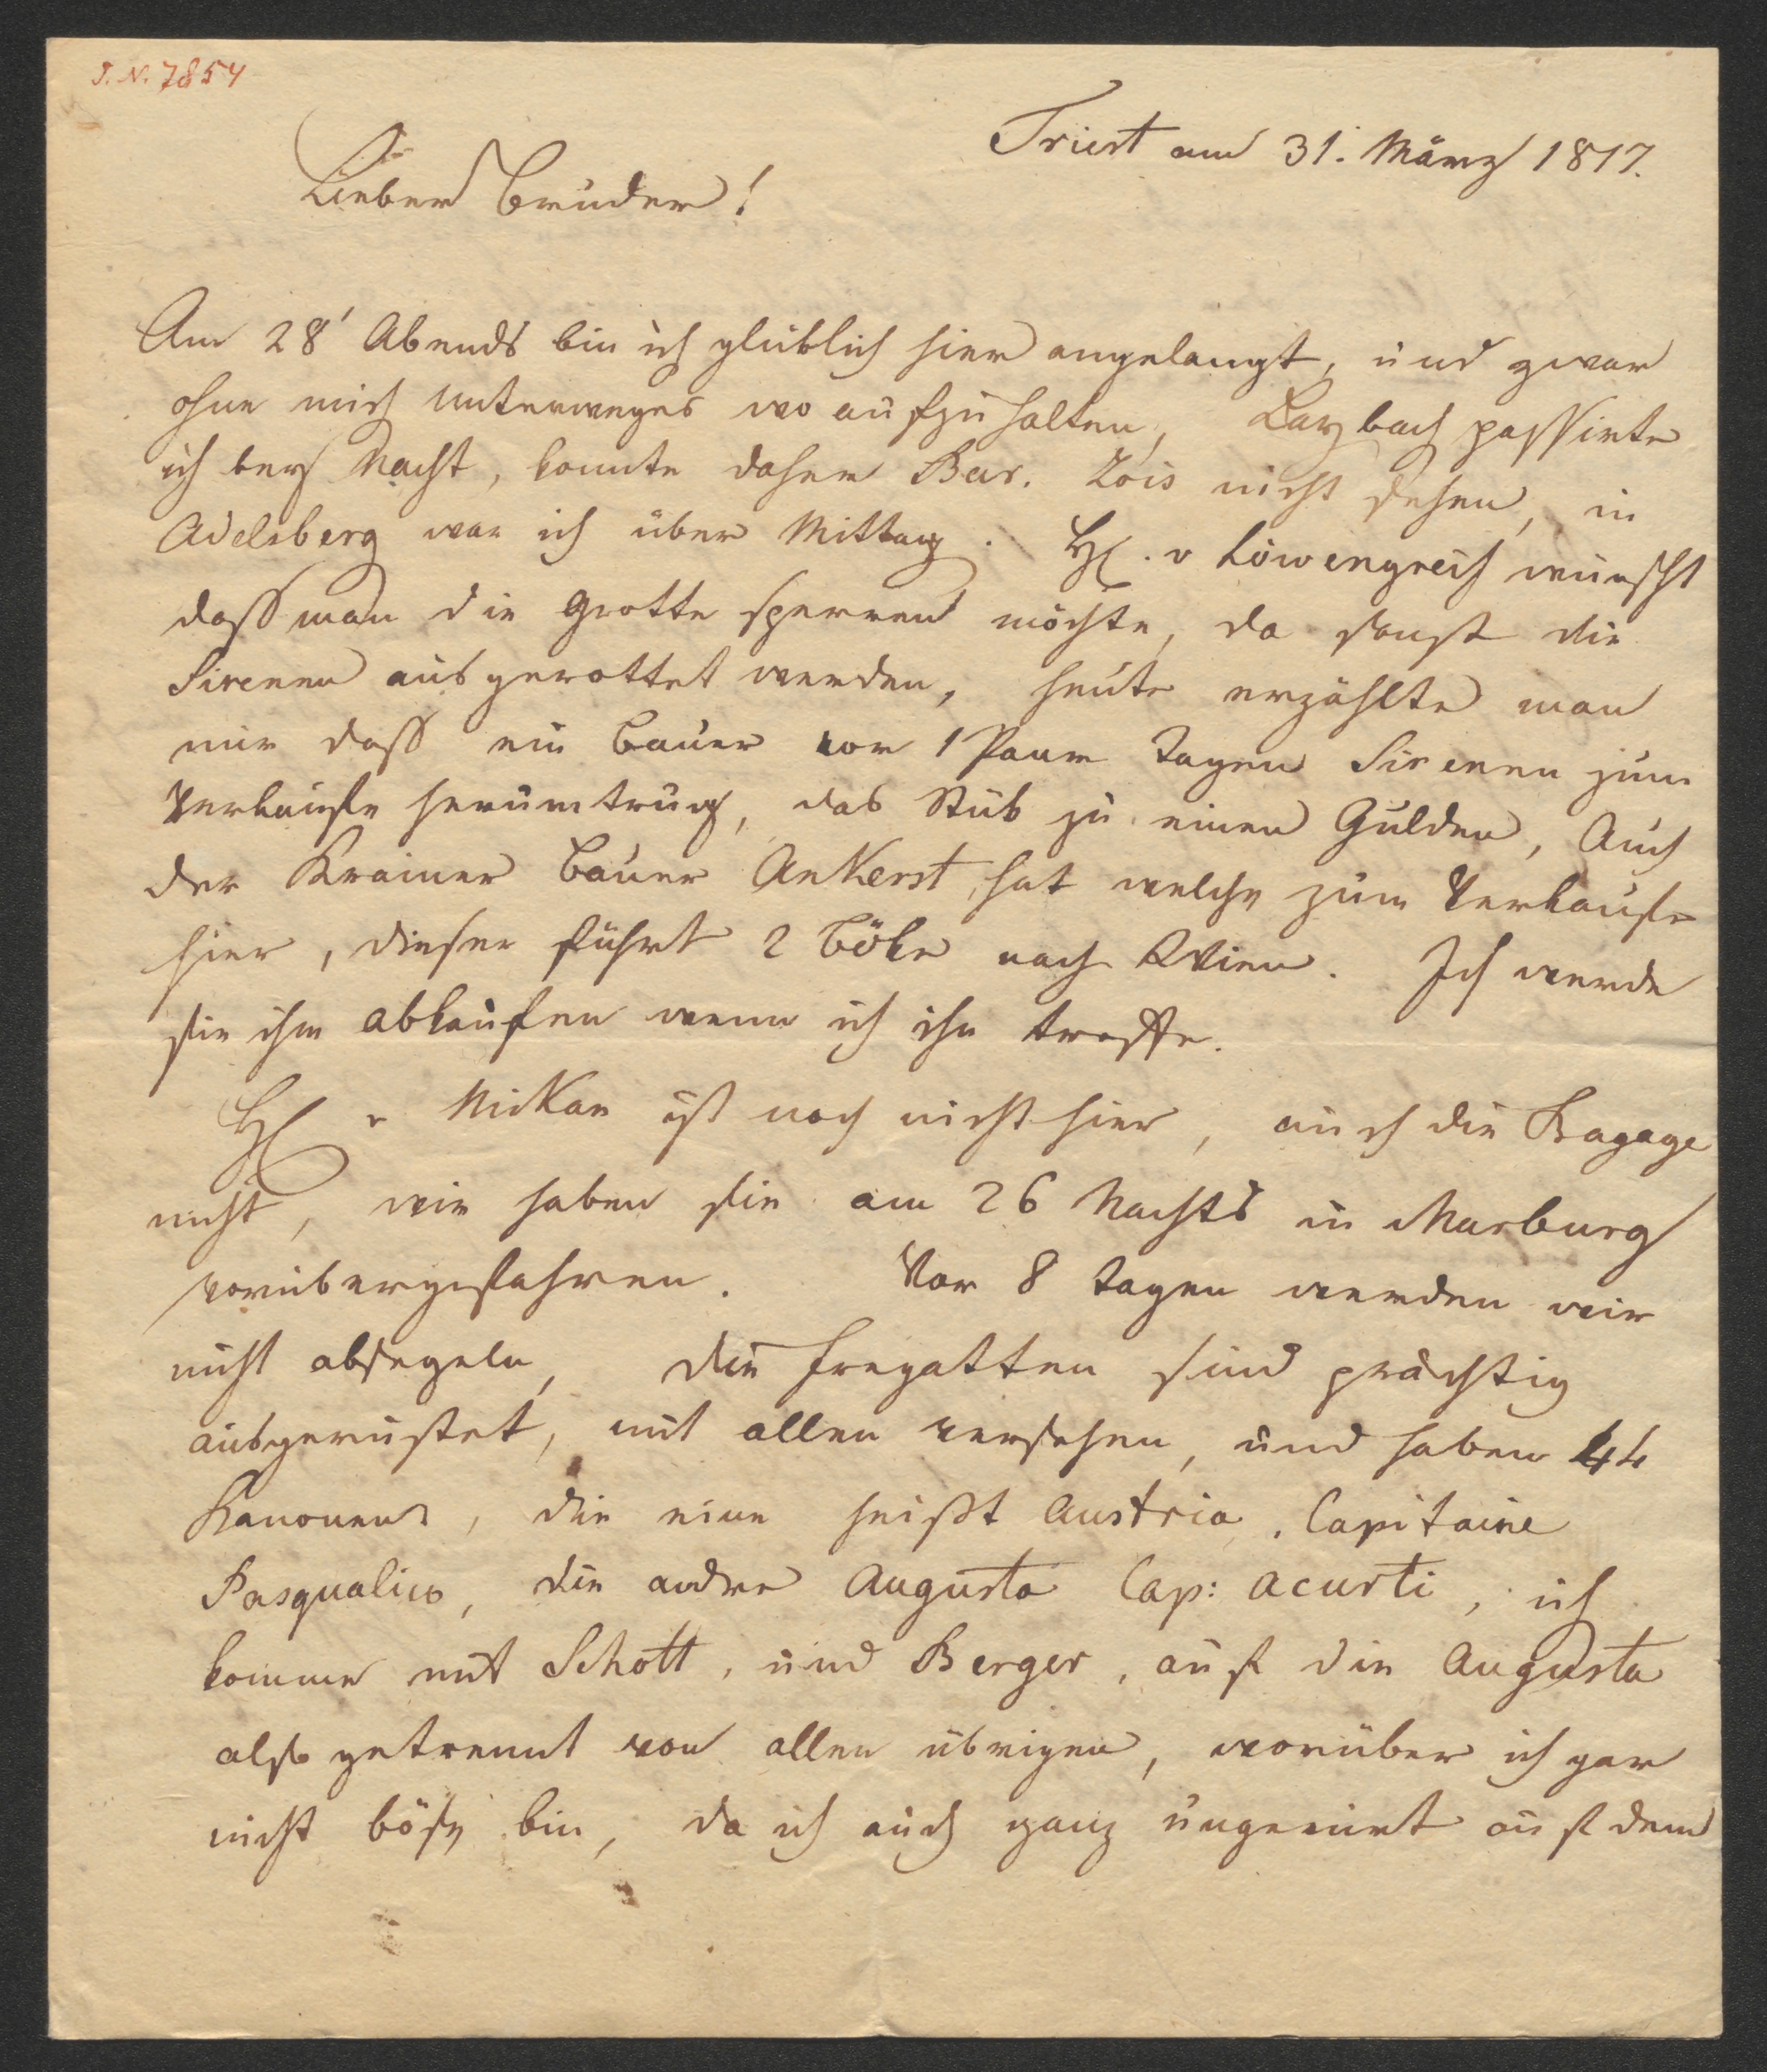 I. N. 7854
Triest am 31. März 1817.
Lieber Bruder!
Am 28' Abends bin ich glüklich hier angelangt, und zwar
ohne mich unterweges wo aufzuhalten, Laybach passirte
ich bey Nacht, konnte daher Bar. Zois nicht sehen, in
Adelsberg war ich über Mittag. H. v Löwengreif wünscht
dass man die Grotte sperren möchte, da sonst die
Sirenen ausgerottet werden, heute erzählte man
mir dass ein Bauer vor 1 Paar Tagen Sirenen zum
Verkaufe herumtrug, das Stük zu einen Gulden, Auch
der Krainer Bauer Ankerst hat welche zum Verkaufe
hier, dieser führt 2 Böke nach Wien. Ich werde
sie ihm abkaufen wenn ich ihn treffe.
H v Mikan ist noch nicht hier, auch die Bagage
nicht, wir haben sie am 26 Nachts in Marburg
vorübergefahren. Vor 8 Tagen werden wir
nicht absegeln, die Fregatten sind prächtig
ausgerüstet, mit allen versehen, und haben 44
Kanonen, die eine heißt Austria, Capitaine
Pasqualico, die andre Augusta Cap: Acurti, ich
komme mit Schott, und Berger, auf die Augusta
also getrennt von allen übrigen, worüber ich gar
nicht böse bin, da ich auch ganz ungenirt auf dem